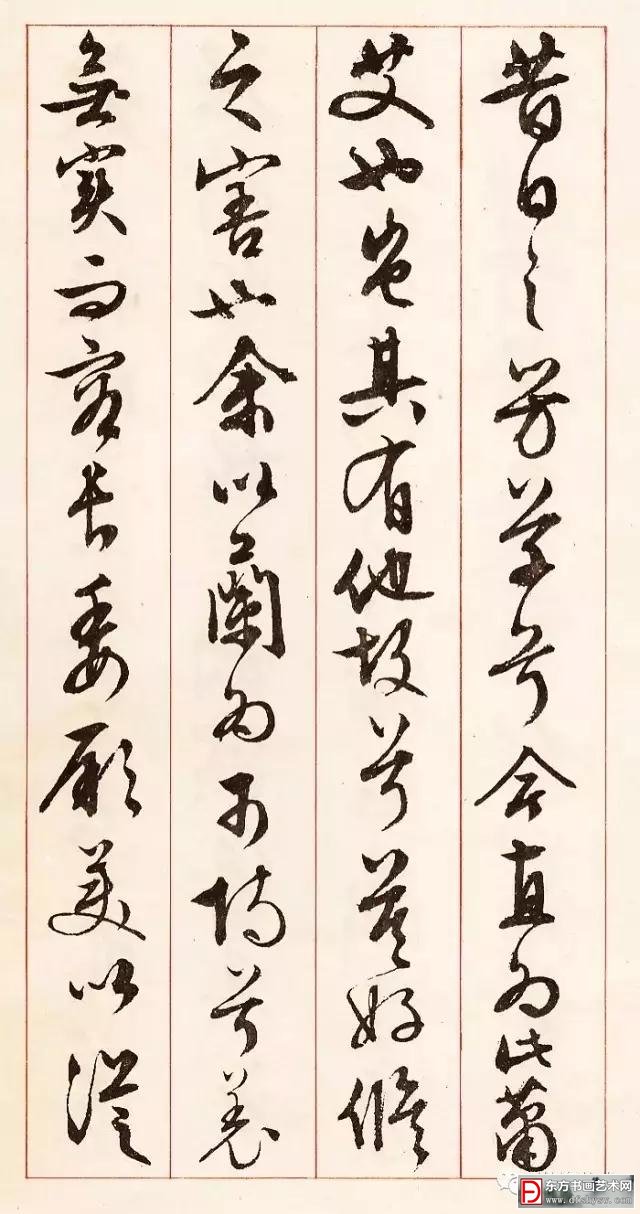 昔日之芳草兮今直為此蕭
艾也豈其有他故兮莫好脩
之害也余以蘭為可恃兮羌
無實而容長委厥美以從
东方书画艺术网